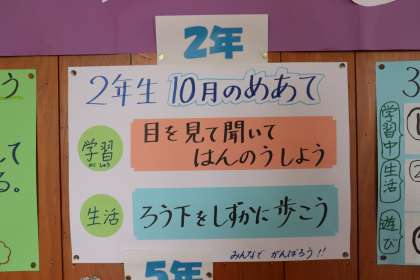 2年
2年生 10月のめあて
学習
がくしゅう
目を見て聞いて
はんのうしよう
生活
ろう下をしずかに歩こう
みんなで がんばろう!!
5年
う
て
る。
3
学習中
生活
遊び